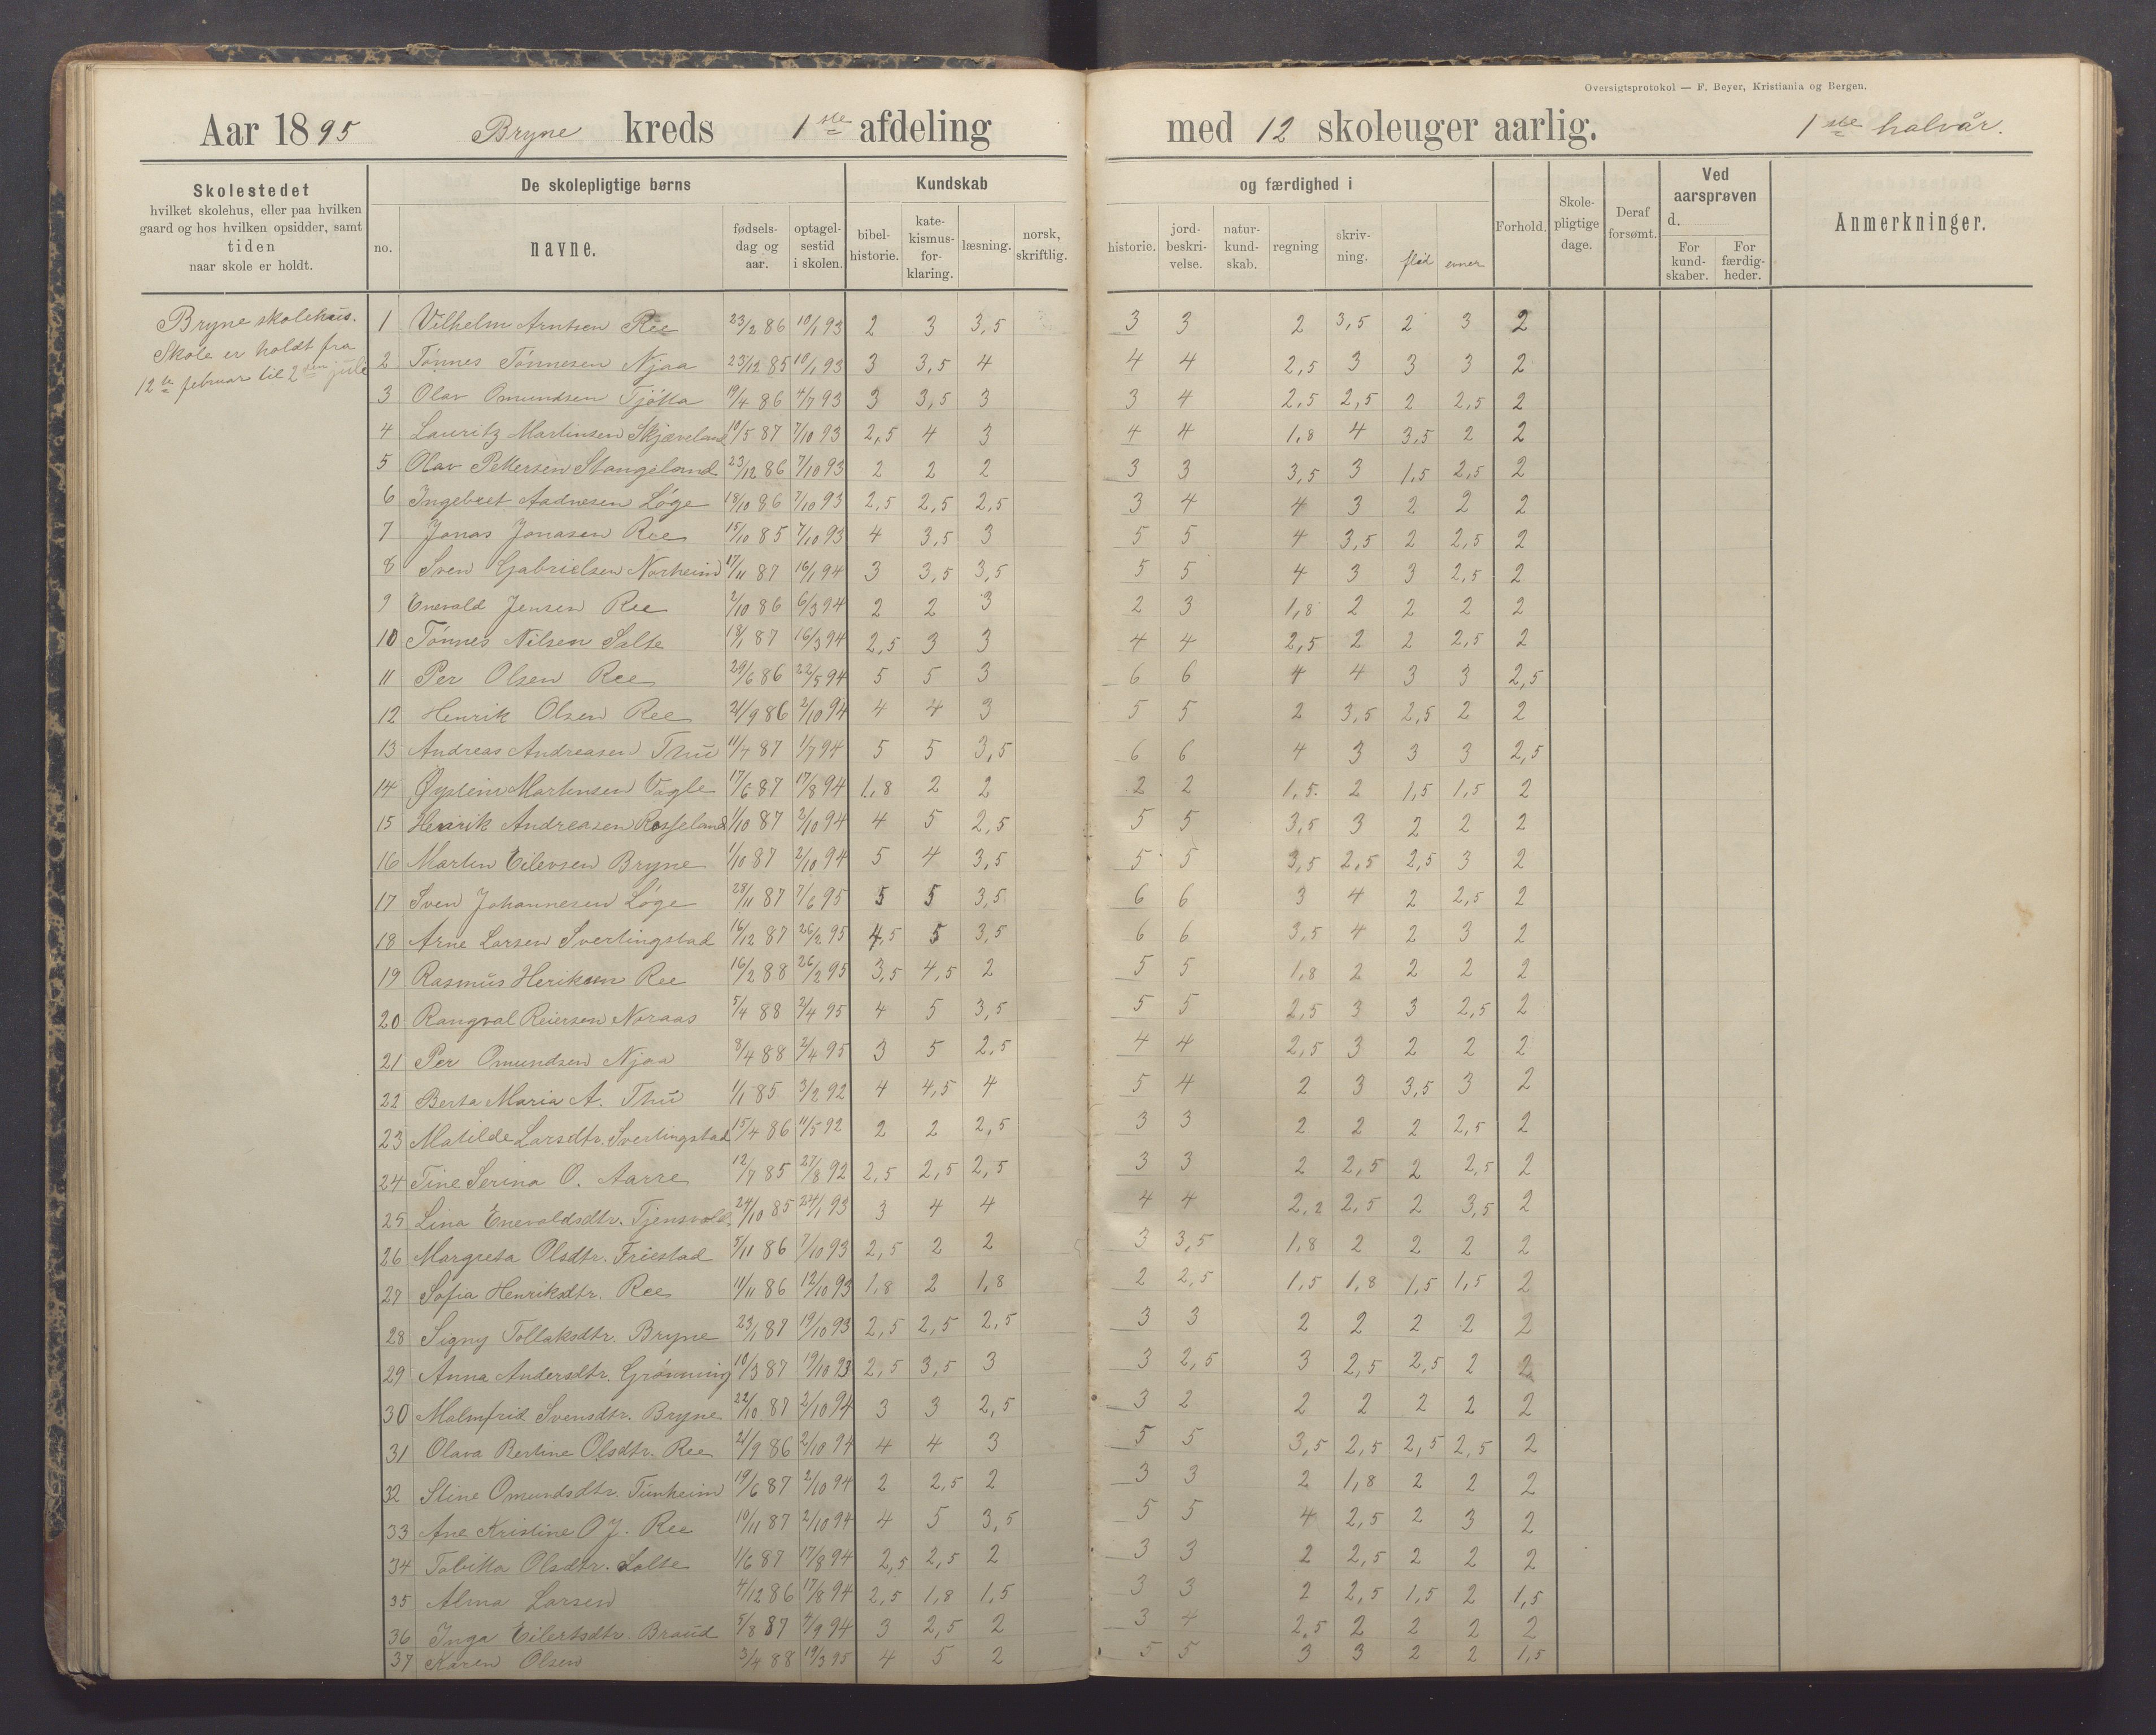 Oversigtsprotokol — F. Beyer, Kristiania og Bergen.
Aar 1895 Bryne kreds 1ste afdeling med 12 skoleuger aarlig. 1ste halvår.
Skolestedet
hvilket skolehus, eller paa hvilken
gaard og hos hvilken opsidder, samt
tiden
naar skole er holdt.
De skolepligtige børns
no. navne. fødsels-dag og aar. optagel-sestid i skolen.
Kundskab og færdighed i
bibel-historie. kate-kismus-for-klaring. læsning. norsk, skriftlig. historie. jord-beskri-velse. natur-kund-skab. regning skriv-ning. flid evner
Forhold. Skole-pligtige dage. Deraf forsømt.
Ved aarsprøven
d.
For kund-skaber. For færdig-heder.
Anmerkninger.
Bryne skolehus.
Skole er holdt fra
12te februar til 2den juli
1 Vilhelm Arntsen Ree 23/2 86 10/1 93 2 3 3,5 3 3 2 3,5 2 3 2
2 Tønnes Tønnesen Njaa 23/12 85 10/1 93 3 3,5 4 4 4 2,5 3 3 3 2
3 Olav Omundsen Tjøtta 19/4 86 4/7 93 3 3,5 3 3 4 2,5 2,5 2 2,5 2
4 Lauritz Martinsen Skjæveland 10/5 87 7/10 93 2,5 4 3 4 4 1,8 4 3,5 2 2
5 Olav Pettersen Stangeland 23/12 86 7/10 93 2 2 2 3 3 3,5 3 1,5 2,5 2
6 Ingebret Aadnesen Løge 18/10 86 7/10 93 2,5 2,5 2,5 3 4 4 3 2 2 2
7 Jonas Jonasen Ree 15/10 85 7/10 93 4 3,5 3 5 5 4 3,5 2 2,5 2
8 Sven Gabrielsen Norheim 17/11 87 16/1 94 3 3,5 3,5 5 5 4 3 3 2,5 2
9 Enevald Jensen Ree 2/10 86 6/3 94 2 2 3 2 3 1,8 2 2 2 2
10 Tønnes Nilsen Salte 18/1 87 16/3 94 2,5 3 3 4 4 2,5 2 2 2,5 2
11 Per Olsen Ree 29/6 86 22/5 94 5 5 3 6 6 4 4 3 3 2,5
12 Henrik Olsen Ree 21/9 86 2/10 94 4 4 3 5 5 2 3,5 2,5 2 2
13 Andreas Andreasen Thu 11/7 87 1/7 94 5 5 3,5 6 6 4 3 3 3 2,5
14 Øystein Martinsen Vagle 17/6 87 17/8 94 1,8 2 2 2 2 1,5 2 1,5 1,5 2
15 Henrik Andreasen Rosseland 1/10 87 2/10 94 4 5 2,5 5 5 3,5 3 2 2 2
16 Martin Eilevsen Bryne 1/10 87 2/10 94 5 4 3,5 5 5 3,5 2,5 2,5 3 2
17 Sven Johannesen Løge 28/11 87 7/6 95 5 5 3,5 6 6 3 4 2 2,5 2
18 Arne Larsen Svertingstad 16/12 87 26/2 95 4,5 5 3,5 6 6 3,5 4 2 3 2
19 Rasmus Heriksen Ree 16/2 88 26/2 95 3,5 4,5 2 5 5 1,8 2 2 2 2
20 Rangval Reiersen Noraas 5/4 88 2/4 95 4 5 3,5 5 5 2,5 3 3 2,5 2
21 Per Omundsen Njaa 8/4 88 2/4 95 3 5 2,5 4 4 2,5 3 2 2 2
22 Berta Maria A. Thu 1/1 85 3/2 92 4 4,5 4 5 4 2 3 3,5 3 2
23 Matilde Larsdtr. Svertingstad 15/4 86 11/5 92 2 2 2,5 3 3 2 2 2 2,5 2
24 Tine Serina O. Aarre 12/7 85 27/8 92 2,5 2,5 2,5 3 3 2 2,5 2 2,5 2
25 Lina Enevaldsdtr. Tjensvold 24/10 85 24/1 93 3 4 4 4 4 2,2 2,5 2 3,5 2
26 Margreta Olsdtr. Friestad 5/11 86 7/10 93 2,5 2 2 3 3,5 1,8 2 2 2 2
27 Sofia Henriksdtr. Ree 11/11 86 12/10 93 1,8 2 1,8 2 2,5 1,5 1,8 1,5 1,5 2
28 Signy Tollaksdtr. Bryne 23/1 87 19/10 93 2,5 2,5 2,5 3 3 2 2 2 2 2
29 Anna Andersdtr. Grønning 10/3 87 19/10 93 2,5 3,5 3 3 2,5 3 2,5 2,5 2 2
30 Malmfrid Svensdtr. Bryne 22/10 87 2/10 94 3 3 2,5 3 2 2 2 2 2 2
31 Olava Bertine Olsdtr. Ree 21/9 86 2/10 94 4 4 3 5 5 3,5 2,5 2,5 2,5 2
32 Stine Omundsdtr. Tunheim 19/6 87 2/10 94 2 2,5 2 3 3 2 1,8 2 2 2
33 Ane Kristine O J. Ree 10/11 87 2/10 94 4 5 3,5 5 5 4 2,5 2 3 2
34 Tabitta Olsdtr. Salte 1/6 87 17/8 94 2,5 2,5 2 3 3 2 2,5 2 2 2
35 Alma Larsen 4/12 86 17/8 94 2,5 1,8 1,5 3 3 2 2,5 1,5 2 1,5
36 Inga Eilertsdtr. Braud 5/8 87 4/9 94 3 2,5 2 3 4 2,5 2 2 2 2
37 Karen Olsen 3/4 88 19/3 95 4 5 2 5 5 3 3 2 2 1,5